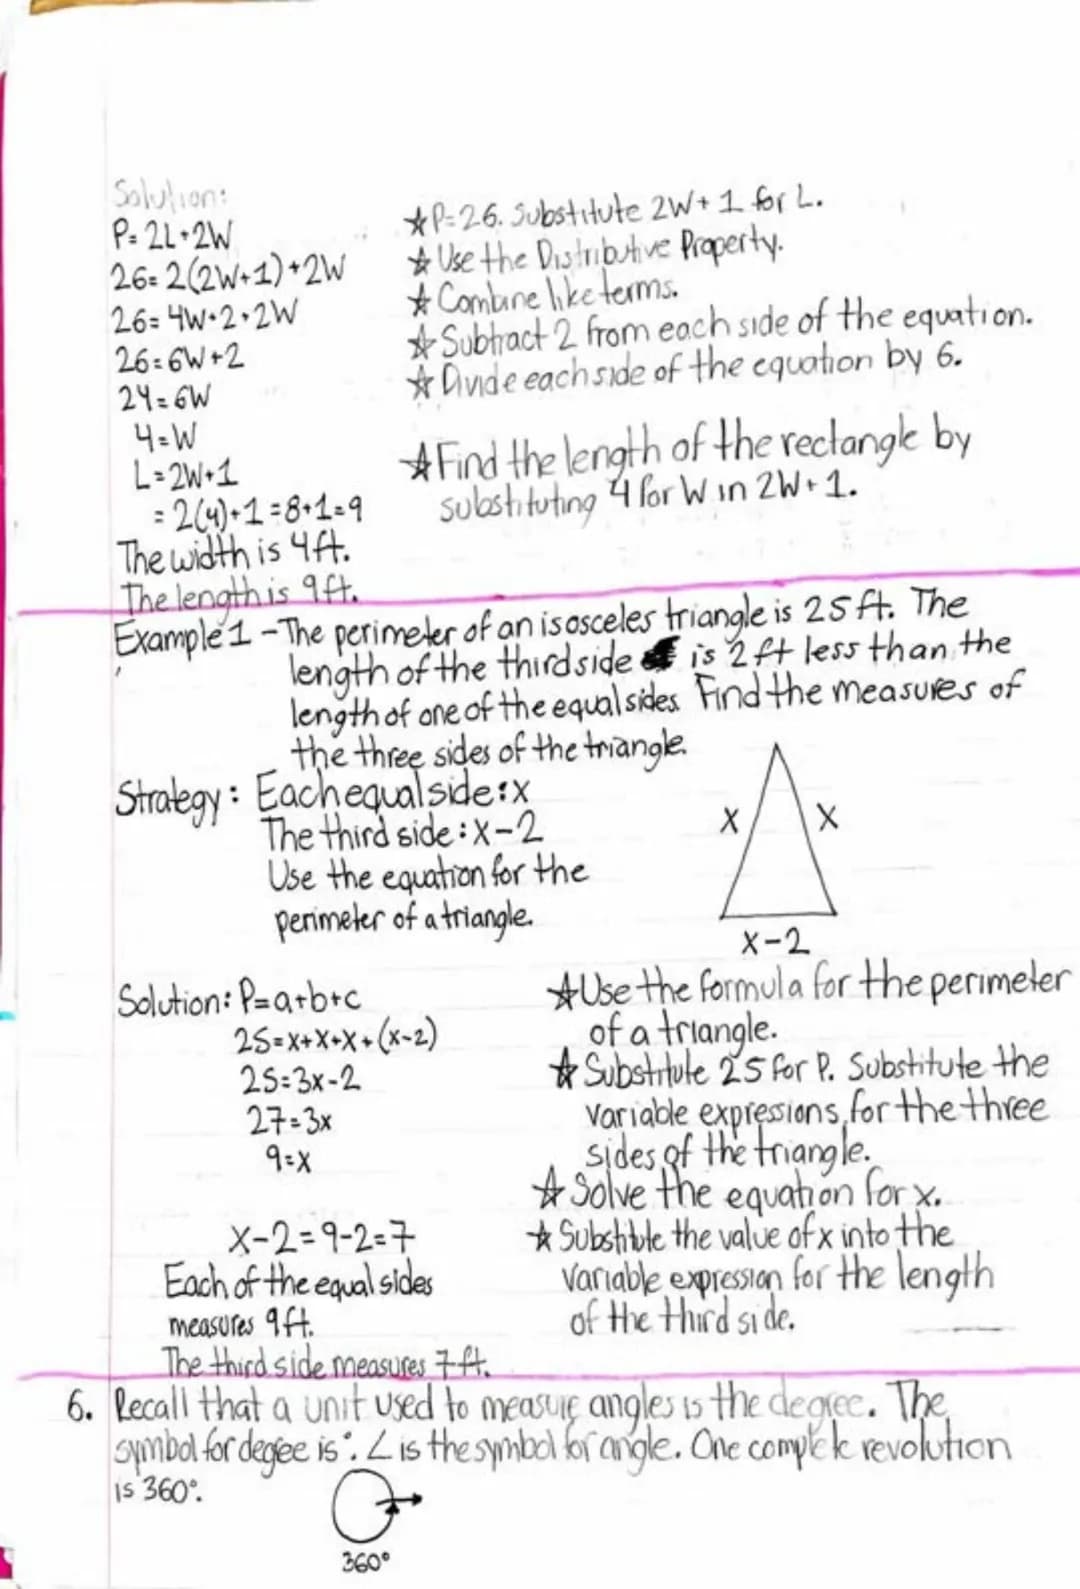 Solution:
P=2L+2W
26=2(2W+1)+2W
26=4W+2+2W
26=6W+2
24=6W
4=W
L=2W+1
=2(4)+1=8+1=9
The width is 4ft.
The length is 9ft.
☆P=26. Substitute 2W+1 for L.
☆Use the Distributive Property.
☆Combine like terms.
☆Subtract 2 from each side of the equation.
☆Divide each side of the equation by 6.
☆Find the length of the rectangle by
substituting 4 for W in 2W+1.
Example 1 - The perimeter of an isosceles triangle is 25ft. The
length of the third side is 2ft less than the
length of one of the equal sides. Find the measures of
the three sides of the triangle.
Strategy: Each equal side: x
The third side: x-2
Use the equation for the
perimeter of a triangle.
x
x
x-2
Solution: P=a+b+c
25=x+x+x+(x-2)
25=3x-2
27=3x
9=x
x-2=9-2=7
Each of the equal sides
measures 9ft.
The third side measures 7ft.
☆Use the formula for the perimeter
of a triangle.
☆Substitute 25 for P. Substitute the
variable expressions for the three
sides of the triangle.
☆Solve the equation for x.
☆Substitute the value of x into the
variable expression for the length
of the third side.
6. Recall that a unit used to measure angles is the degree. The
symbol for degree is °. ∠ is the symbol for angle. One complete revolution
is 360°.
360°